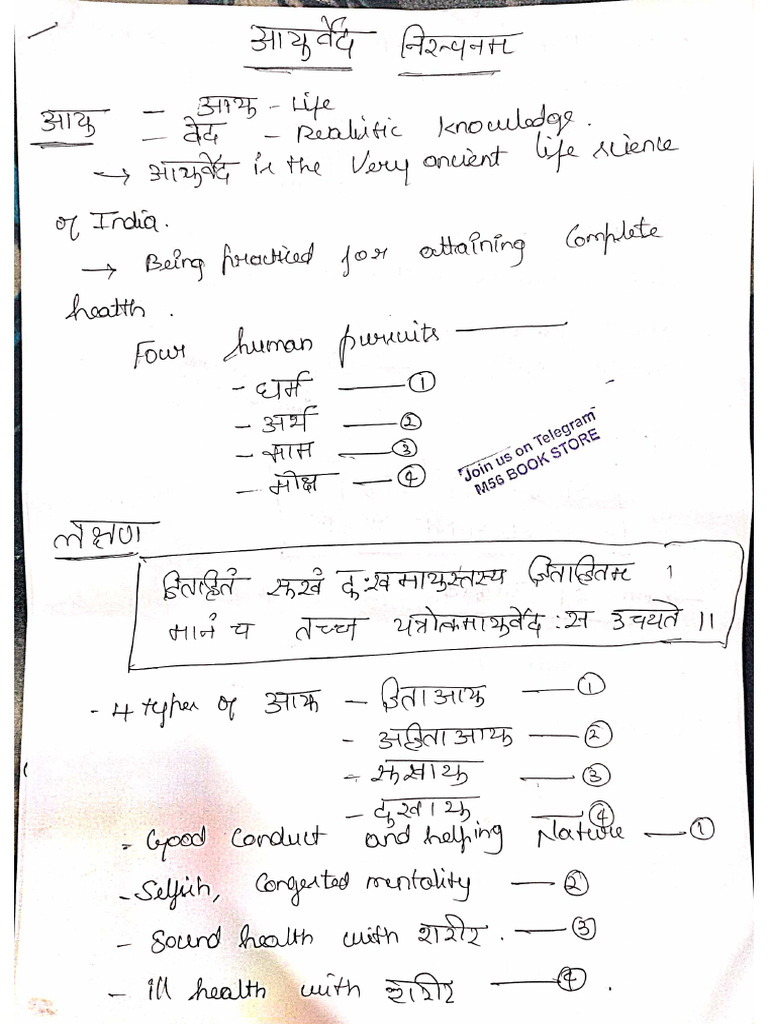 आयुर्वेद निरूपनम
आयु - आयु - Life
- वेद - Realistic knowledge.
→ आयुर्वेद is the very ancient life science
of India.
→ Being practiced for attaining complete
health.
Four human pursuits
- धर्म ①
- अर्थ ②
- ③
- मोक्ष ④
Join us on Telegram
M56 BOOK STORE
लक्षण
हिताहितं सुखं दुःखमायुस्तस्य हिताहितम ।
मानं च तच्च यत्रोक्तमायुर्वेदः स उच्यते ॥
- 4 types of आयु - हिताआयु ①
- अहिताआयु ②
- सुखायु ③
- दुखायु ④
- Good conduct and helping Nature - ①
- Selfish, Congested mentality - ②
- Sound health with शरीर. - ③
- ill health with शरीर ④.